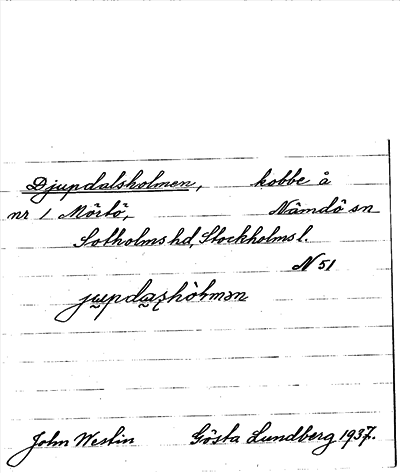 Djupdalsholmen, kobbe å
nr 1 Mörtö, Nämdö sn
Sotholms hd, Stockholms l.
N 51
John Westin Gösta Lundberg 1937.